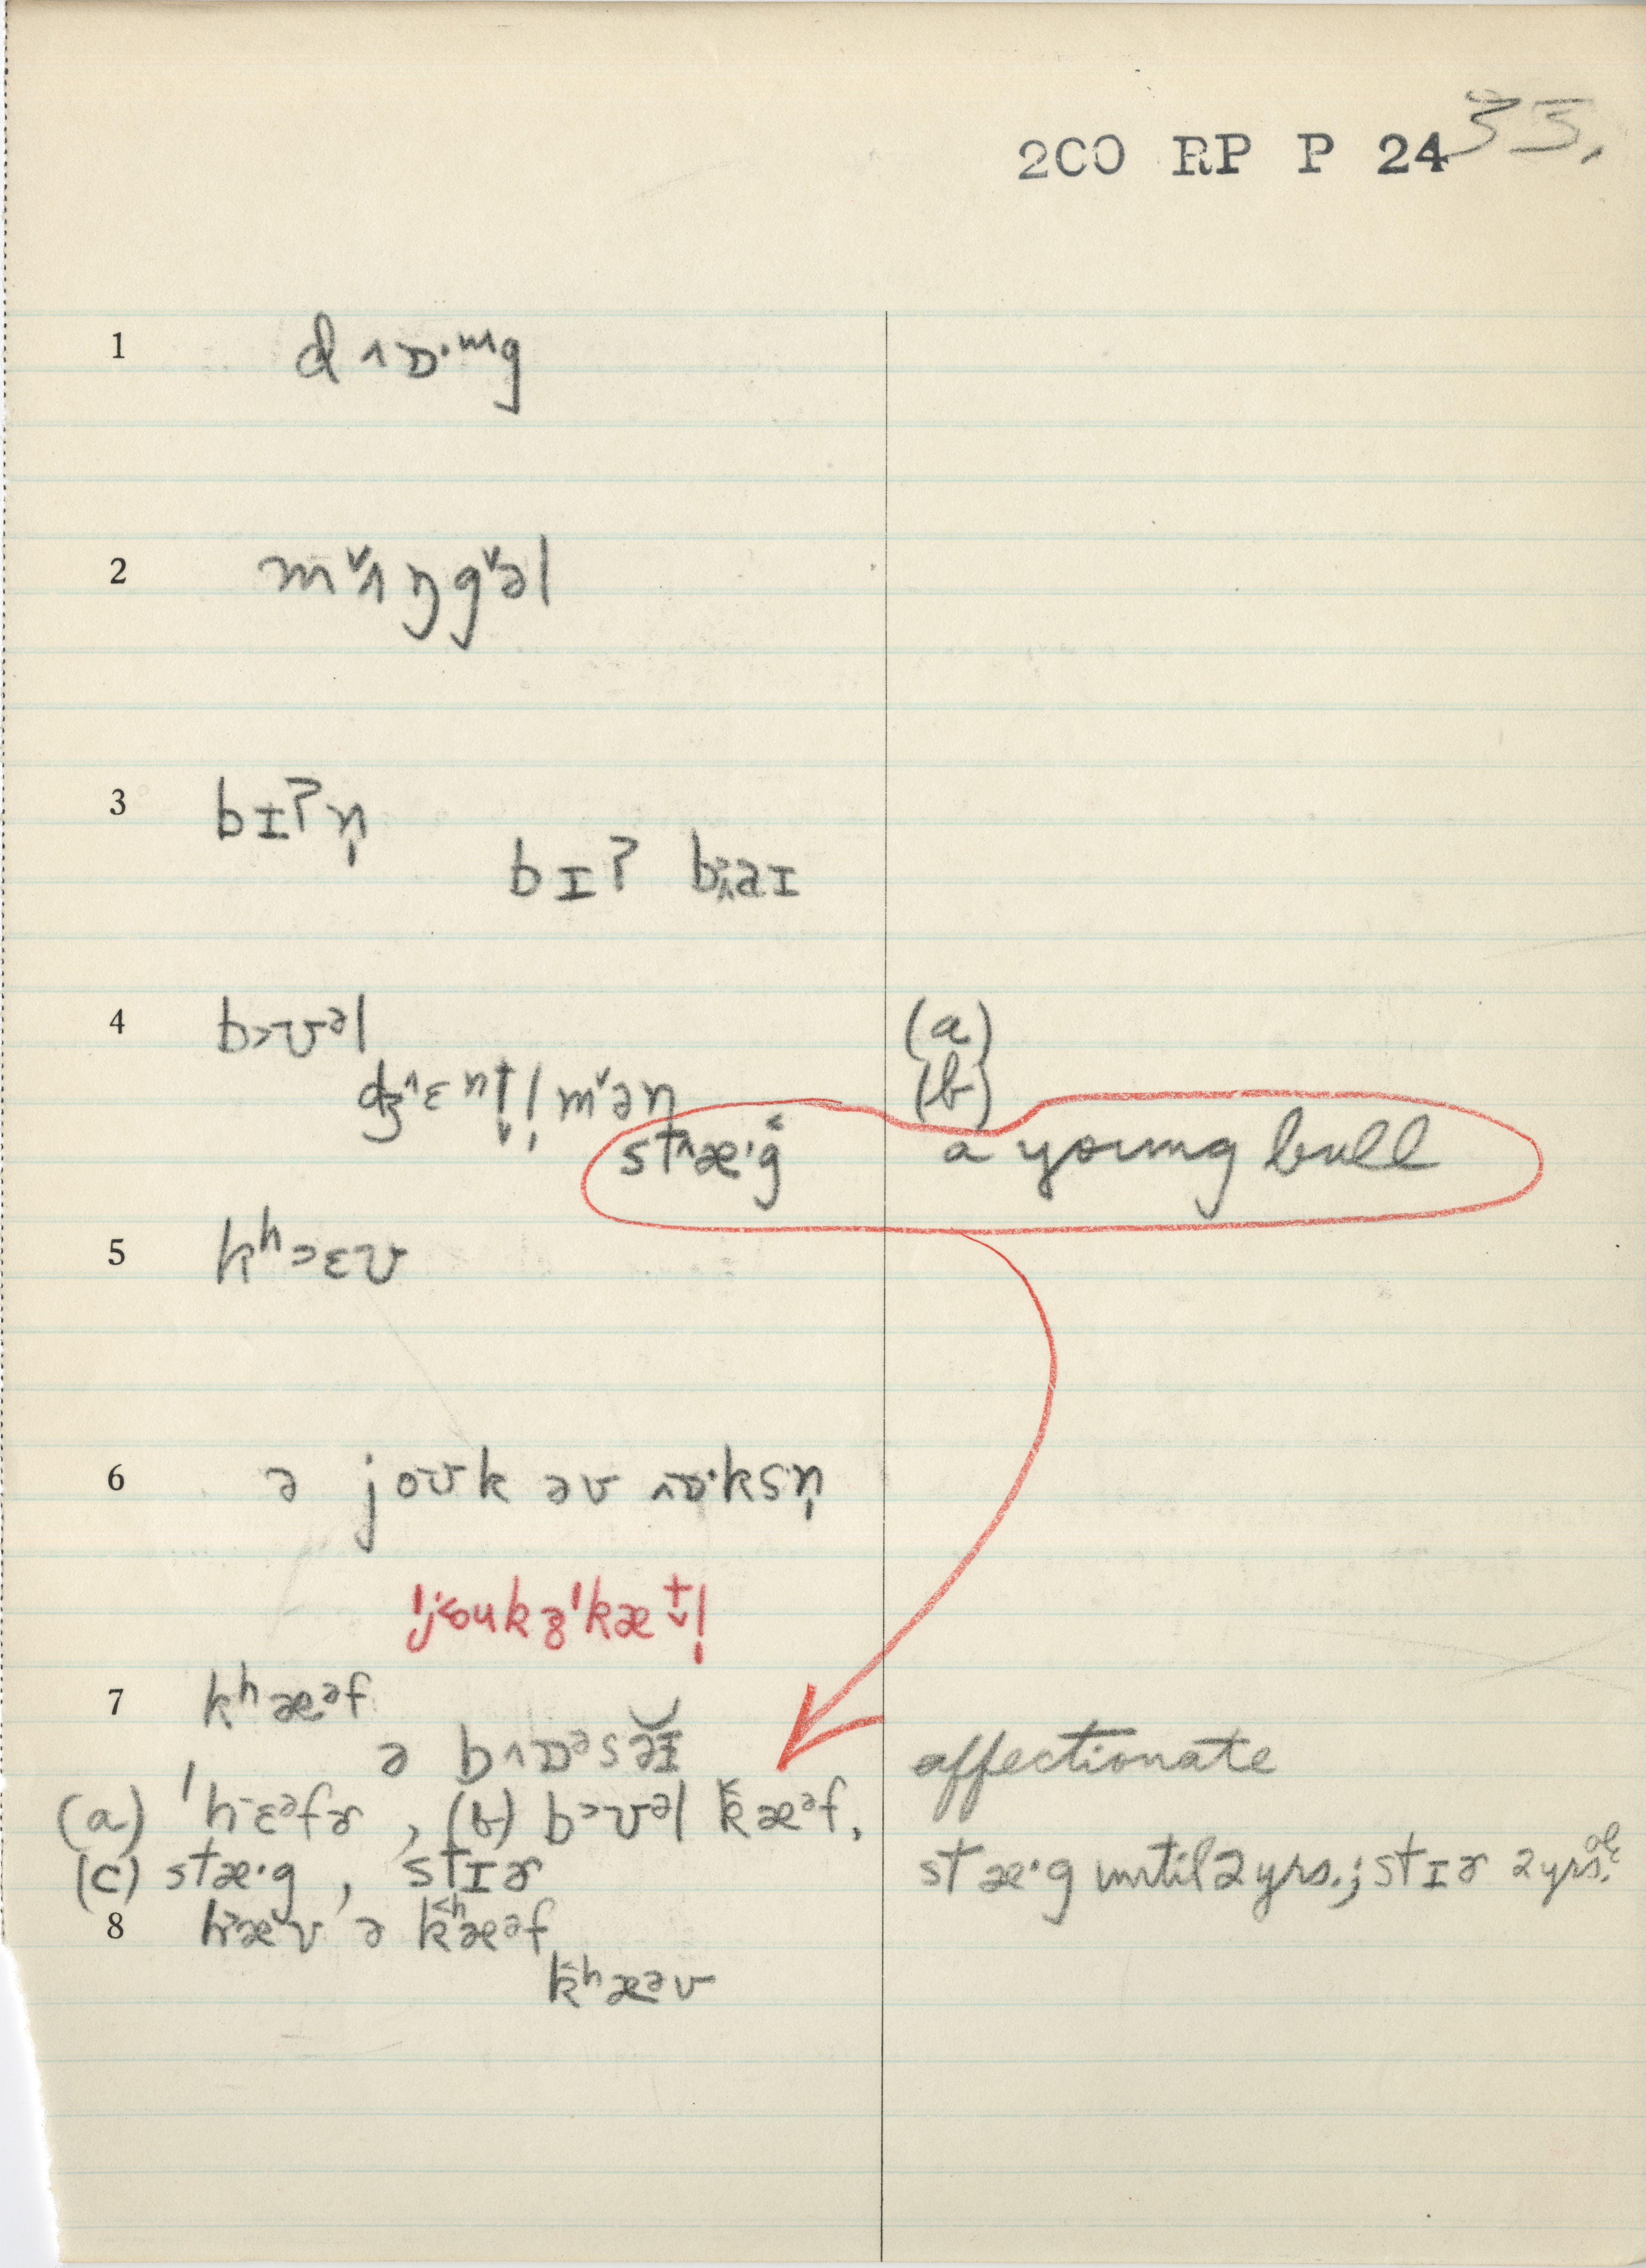 2CO RP P 24 33.
1 d˄ɒ·ᵐg
2 m˅ʌŋg˅əl
3 bɪʔn̩
bɪʔ bəɪ
4 b˃ʊᵊl (a)
dʒ˄ɛⁿt̬l̩m˅ən (b)
st˄æ·g̑ a young bull
5 kʰ˃ɛʊ
6 ə joʊk əv ˄ɒ·ksn̩
ˈj˂oukʒˈkæt̬l̩
7 kʰæᵊf
ə b˄ɒᵊsəɪ affectionate
(a) ˈhɛᵊfɚ , (b) b˃ʊᵊl kæᵊf,
(c) stæ·g , stɪɚ stæ·g until 2 yrs.; stɪɚ 2 yrs. old
8 hæv ə kʰæᵊf
kʰæᵊv